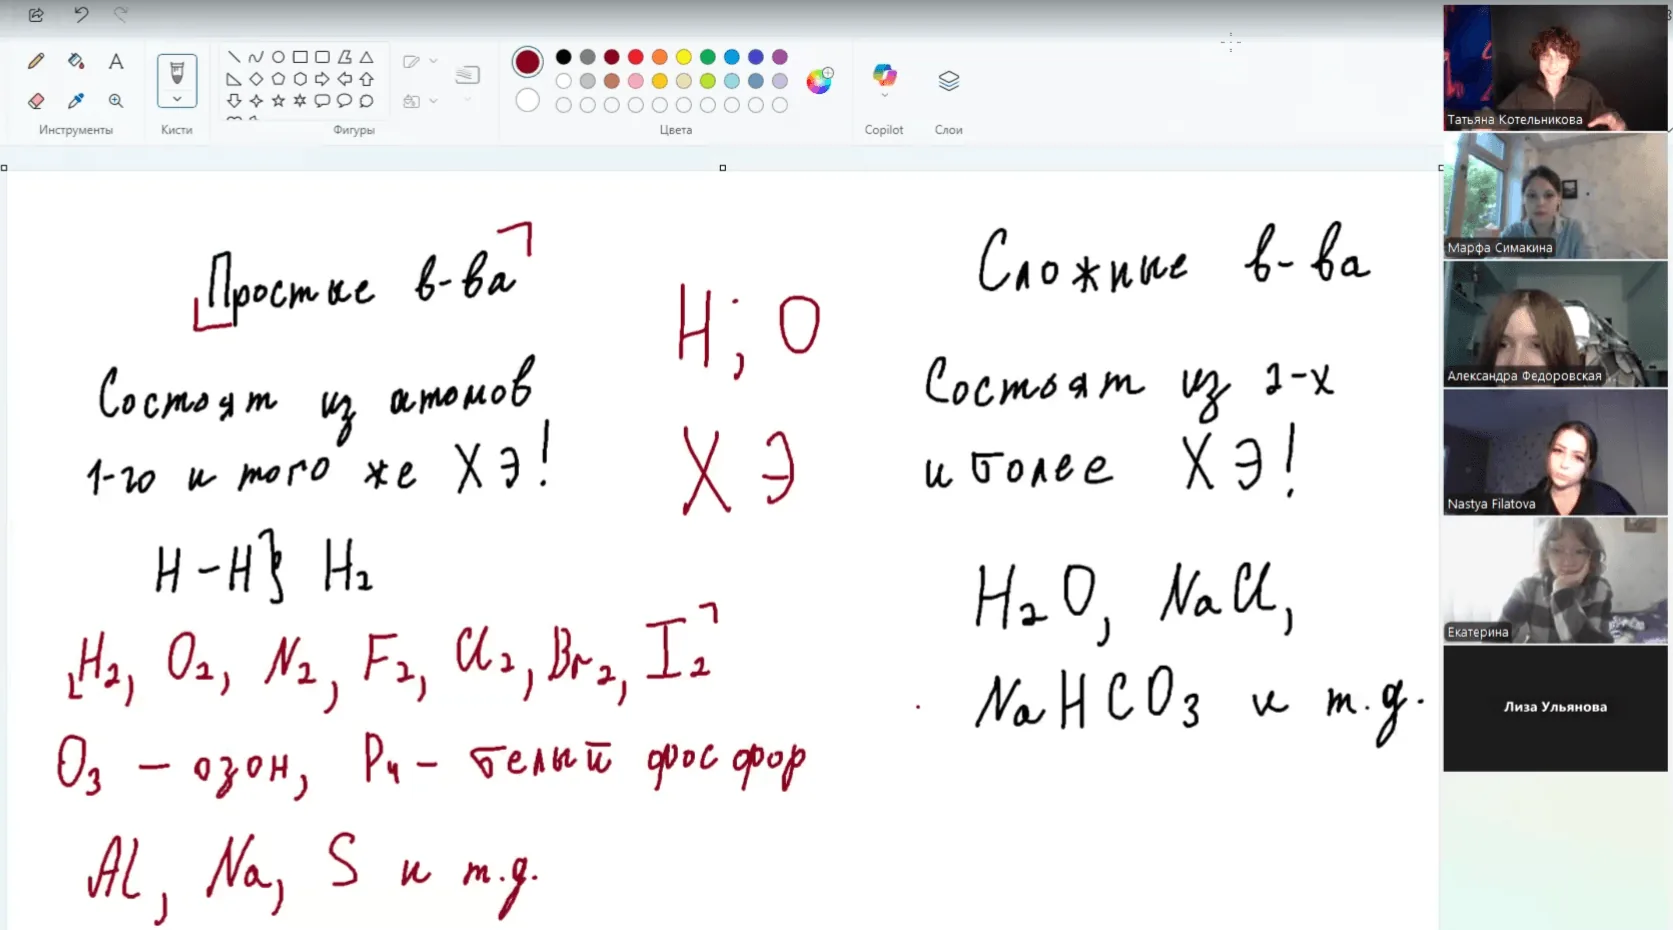 Инструменты
Кисти
Фигуры
Цвета
Copilot
Слои
Простые в-ва
Состоят из атомов
1-го и того же ХЭ!
H-H} H₂
H₂, O₂, N₂, F₂, Cl₂, Br₂, I₂
O₃ - озон, P₄ - белый фосфор
Al, Na, S и т.д.
H; O
ХЭ
Сложные в-ва
Состоят из 2-х
и более ХЭ!
H₂O, NaCl,
NaHCO₃ и т.д.
Татьяна Котельникова
Марфа Симакина
Александра Федоровская
Nastya Filatova
Екатерина
Лиза Ульянова